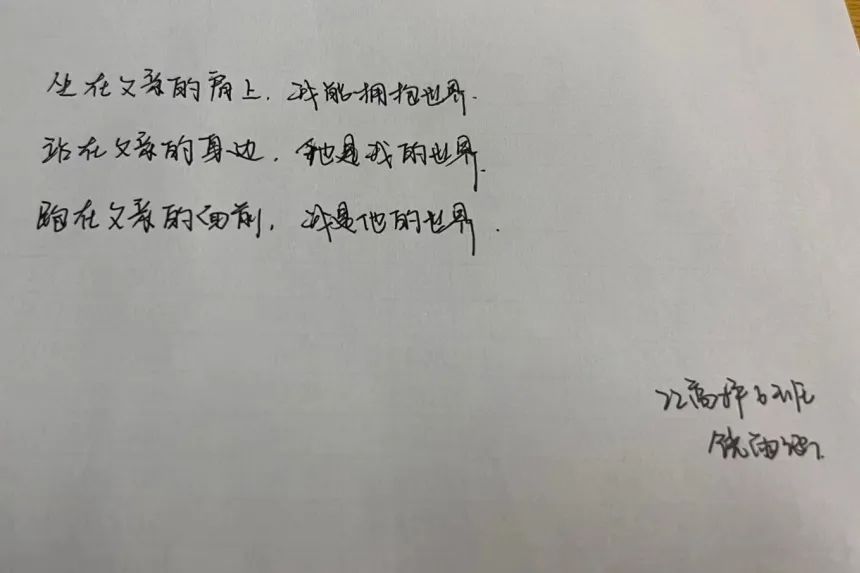 坐在父亲的肩上，我能拥抱世界.
站在父亲的身边，他是我的世界.
跪在父亲的面前，我是他的世界.
22高护6班
饶雨